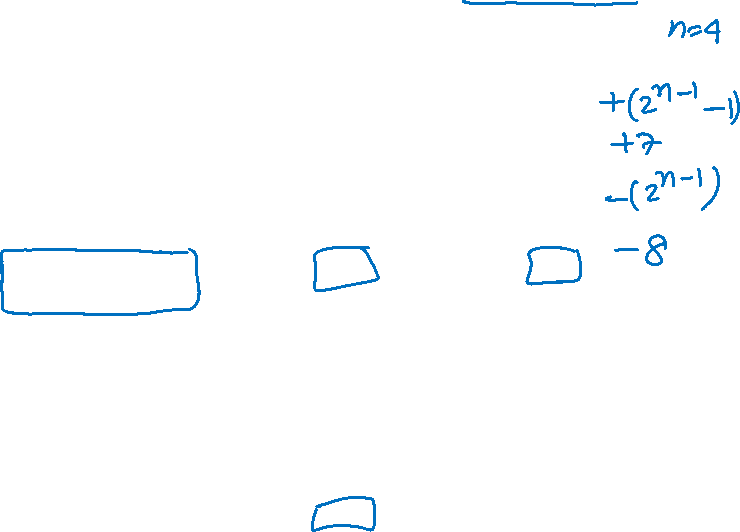 n=4
+(2^{n-1}-1)
+7
-(2^{n-1})
-8